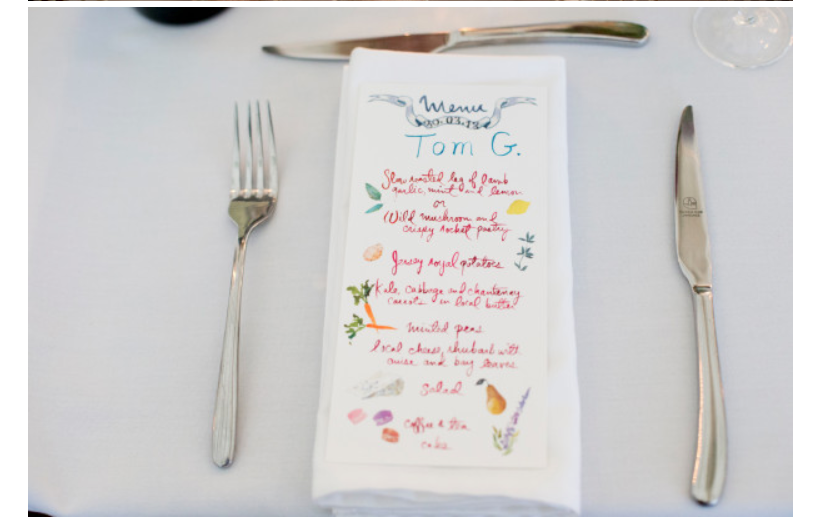 Menu
30.03.12
Tom G.
Slow roasted leg of lamb
garlic, mint and lemon
or
Wild mushroom and
crispy rocket pastry
Jersey royal potatoes
Kale, cabbage and chantenay
carrots in local butter
minted peas
local cheese, rhubarb with
anise and bay leaves
Salad
coffee & tea
cake